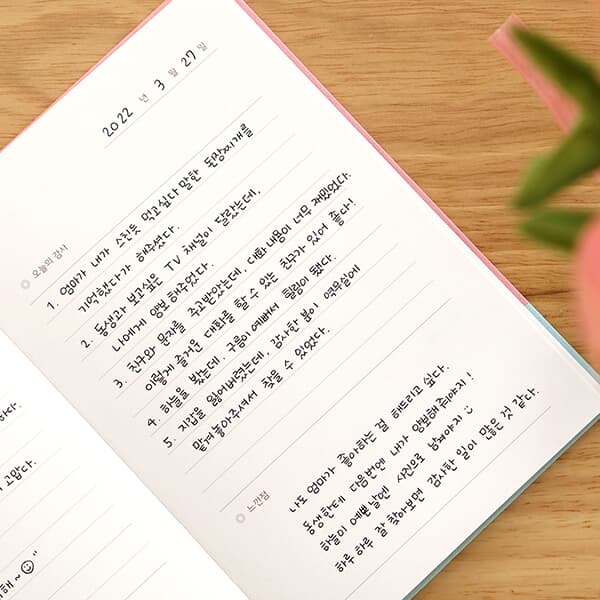 2022 년 3 월 27 일
오늘의 감사
1. 엄마가 내가 스친듯 먹고싶다 말한 된장찌개를
기억했다가 해주셨다.
2. 동생과 보고싶은 TV 채널이 달랐는데,
나에게 양보해주었다.
3. 친구와 문자를 주고받았는데, 대화내용이 너무 재밌었다.
이렇게 즐거운 대화를 할 수 있는 친구가 있어 좋다!
4. 하늘을 봤는데. 구름이 예뻐서 힐링이 됐다.
5. 지갑을 잃어버렸는데, 감사한 분이 역무실에
맡겨놓아주셔서 찾을 수 있었다.
느낀점
나도 엄마가 좋아하는 걸 해드리고 싶다.
동생한테 다음번에 내가 양보해줘야지!
하늘이 예쁜날엔 사진으로 남겨야지
하루하루 잘 찾아보면 감사한 일이 많은 것 같다.
고맙다.
해~